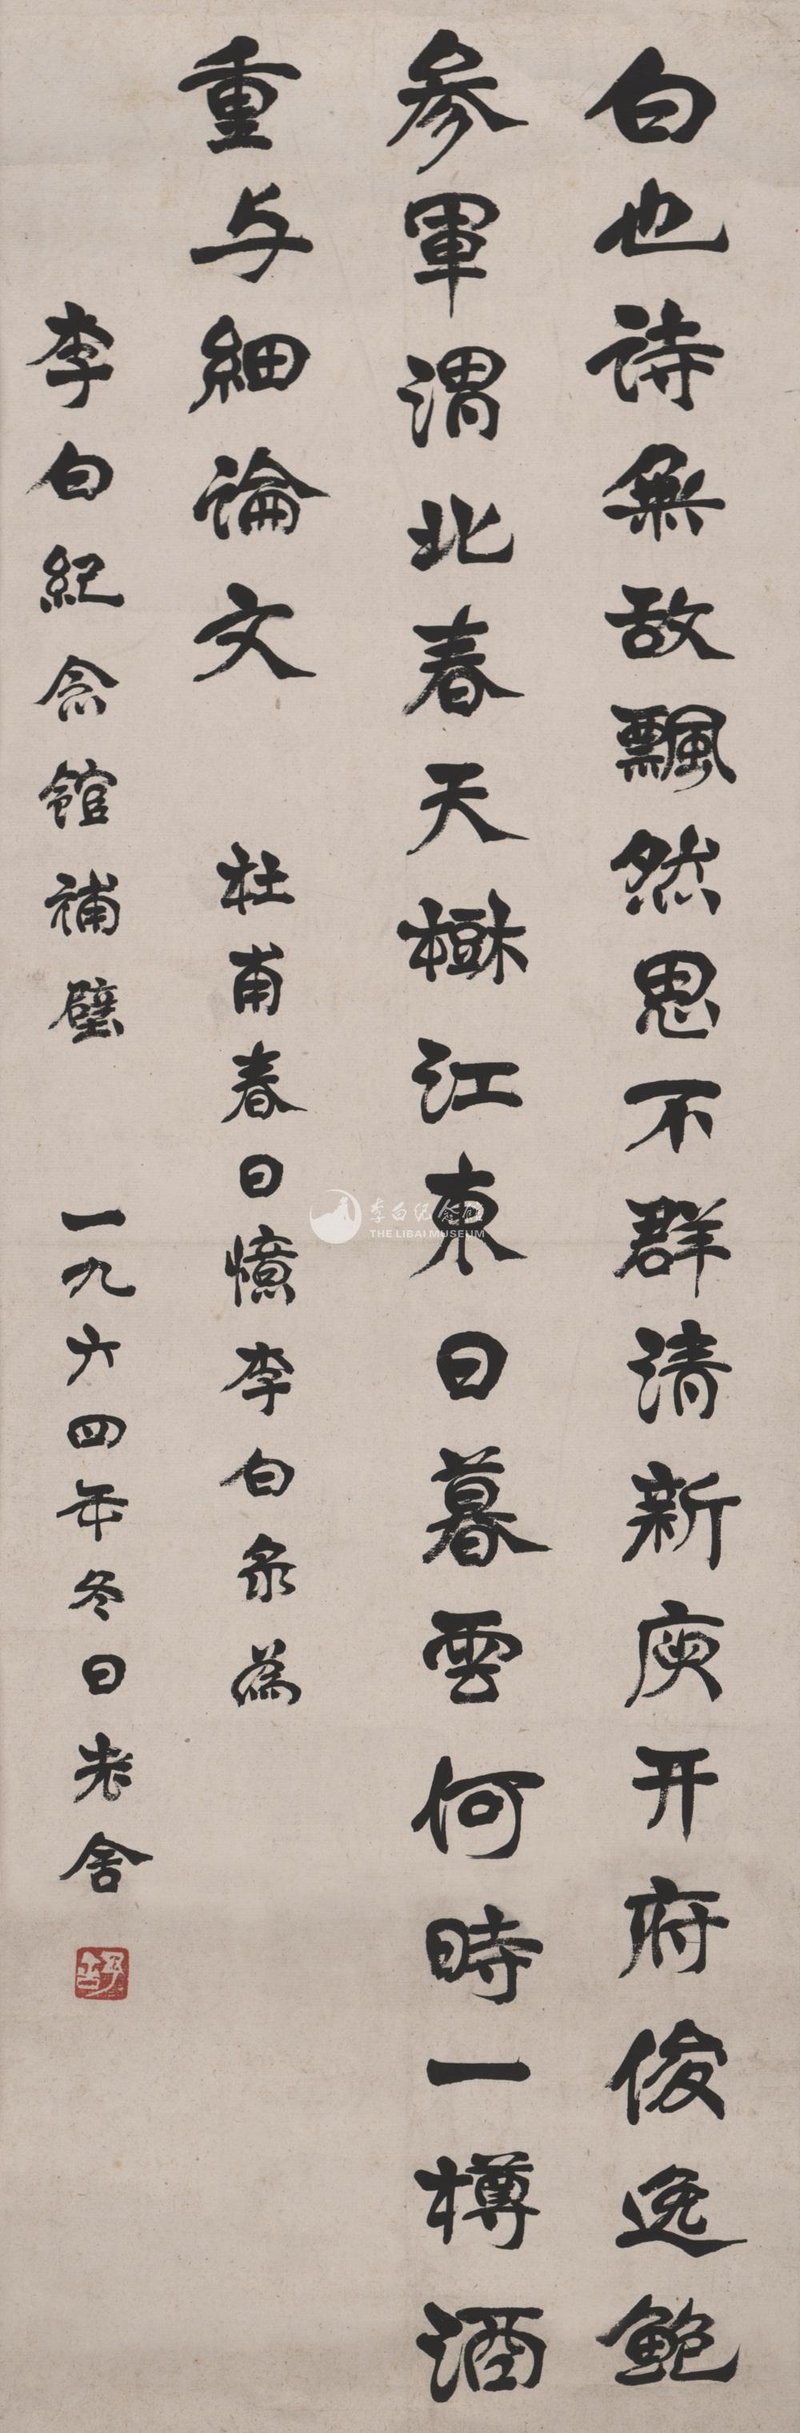 白也詩無敌飄然思不群清新庾开府俊逸鲍
参軍渭北春天樹江東日暮雲何時一樽酒
重与細論文
杜甫春日憶李白录為
李白紀念館補壁
一九六四年冬日老舍
李白纪念馆
THE LIBAI MUSEUM